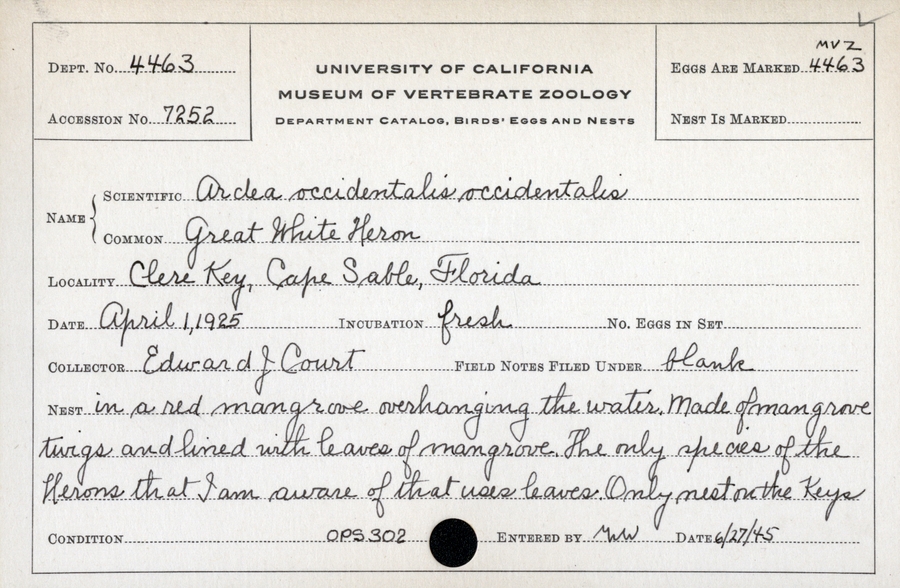 MVZ
DEPT. NO. 4463
UNIVERSITY OF CALIFORNIA
EGGS ARE MARKED 4463
MUSEUM OF VERTEBRATE ZOOLOGY
ACCESSION NO. 7252
DEPARTMENT CATALOG, BIRDS' EGGS AND NESTS
NEST IS MARKED
NAME
SCIENTIFIC Ardea occidentalis occidentalis
COMMON Great White Heron
LOCALITY Clere Key, Cape Sable, Florida
DATE April 1, 1925 INCUBATION fresh NO. EGGS IN SET
COLLECTOR Edward J Court FIELD NOTES FILED UNDER blank
NEST in a red mangrove overhanging the water. Made of mangrove
twigs and lined with leaves of mangrove. The only species of the
Herons that I am aware of that uses leaves. Only nest on the Keys
CONDITION OPS 302 ENTERED BY MW DATE 6/27/45